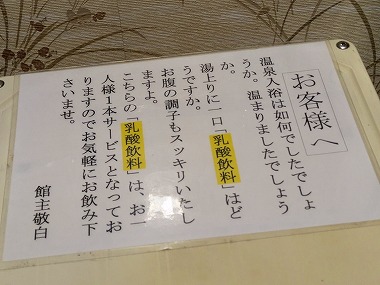 お客様へ
温泉入浴は如何でしたでしょ
うか。温まりましたでしょう
か。
湯上りに一口「乳酸飲料」はど
うですか。
お腹の調子もスッキリいたし
ますよ。
こちらの「乳酸飲料」は、お一
人様1本サービスとなってお
りますのでお気軽にお飲み下
さいませ。
館主敬白